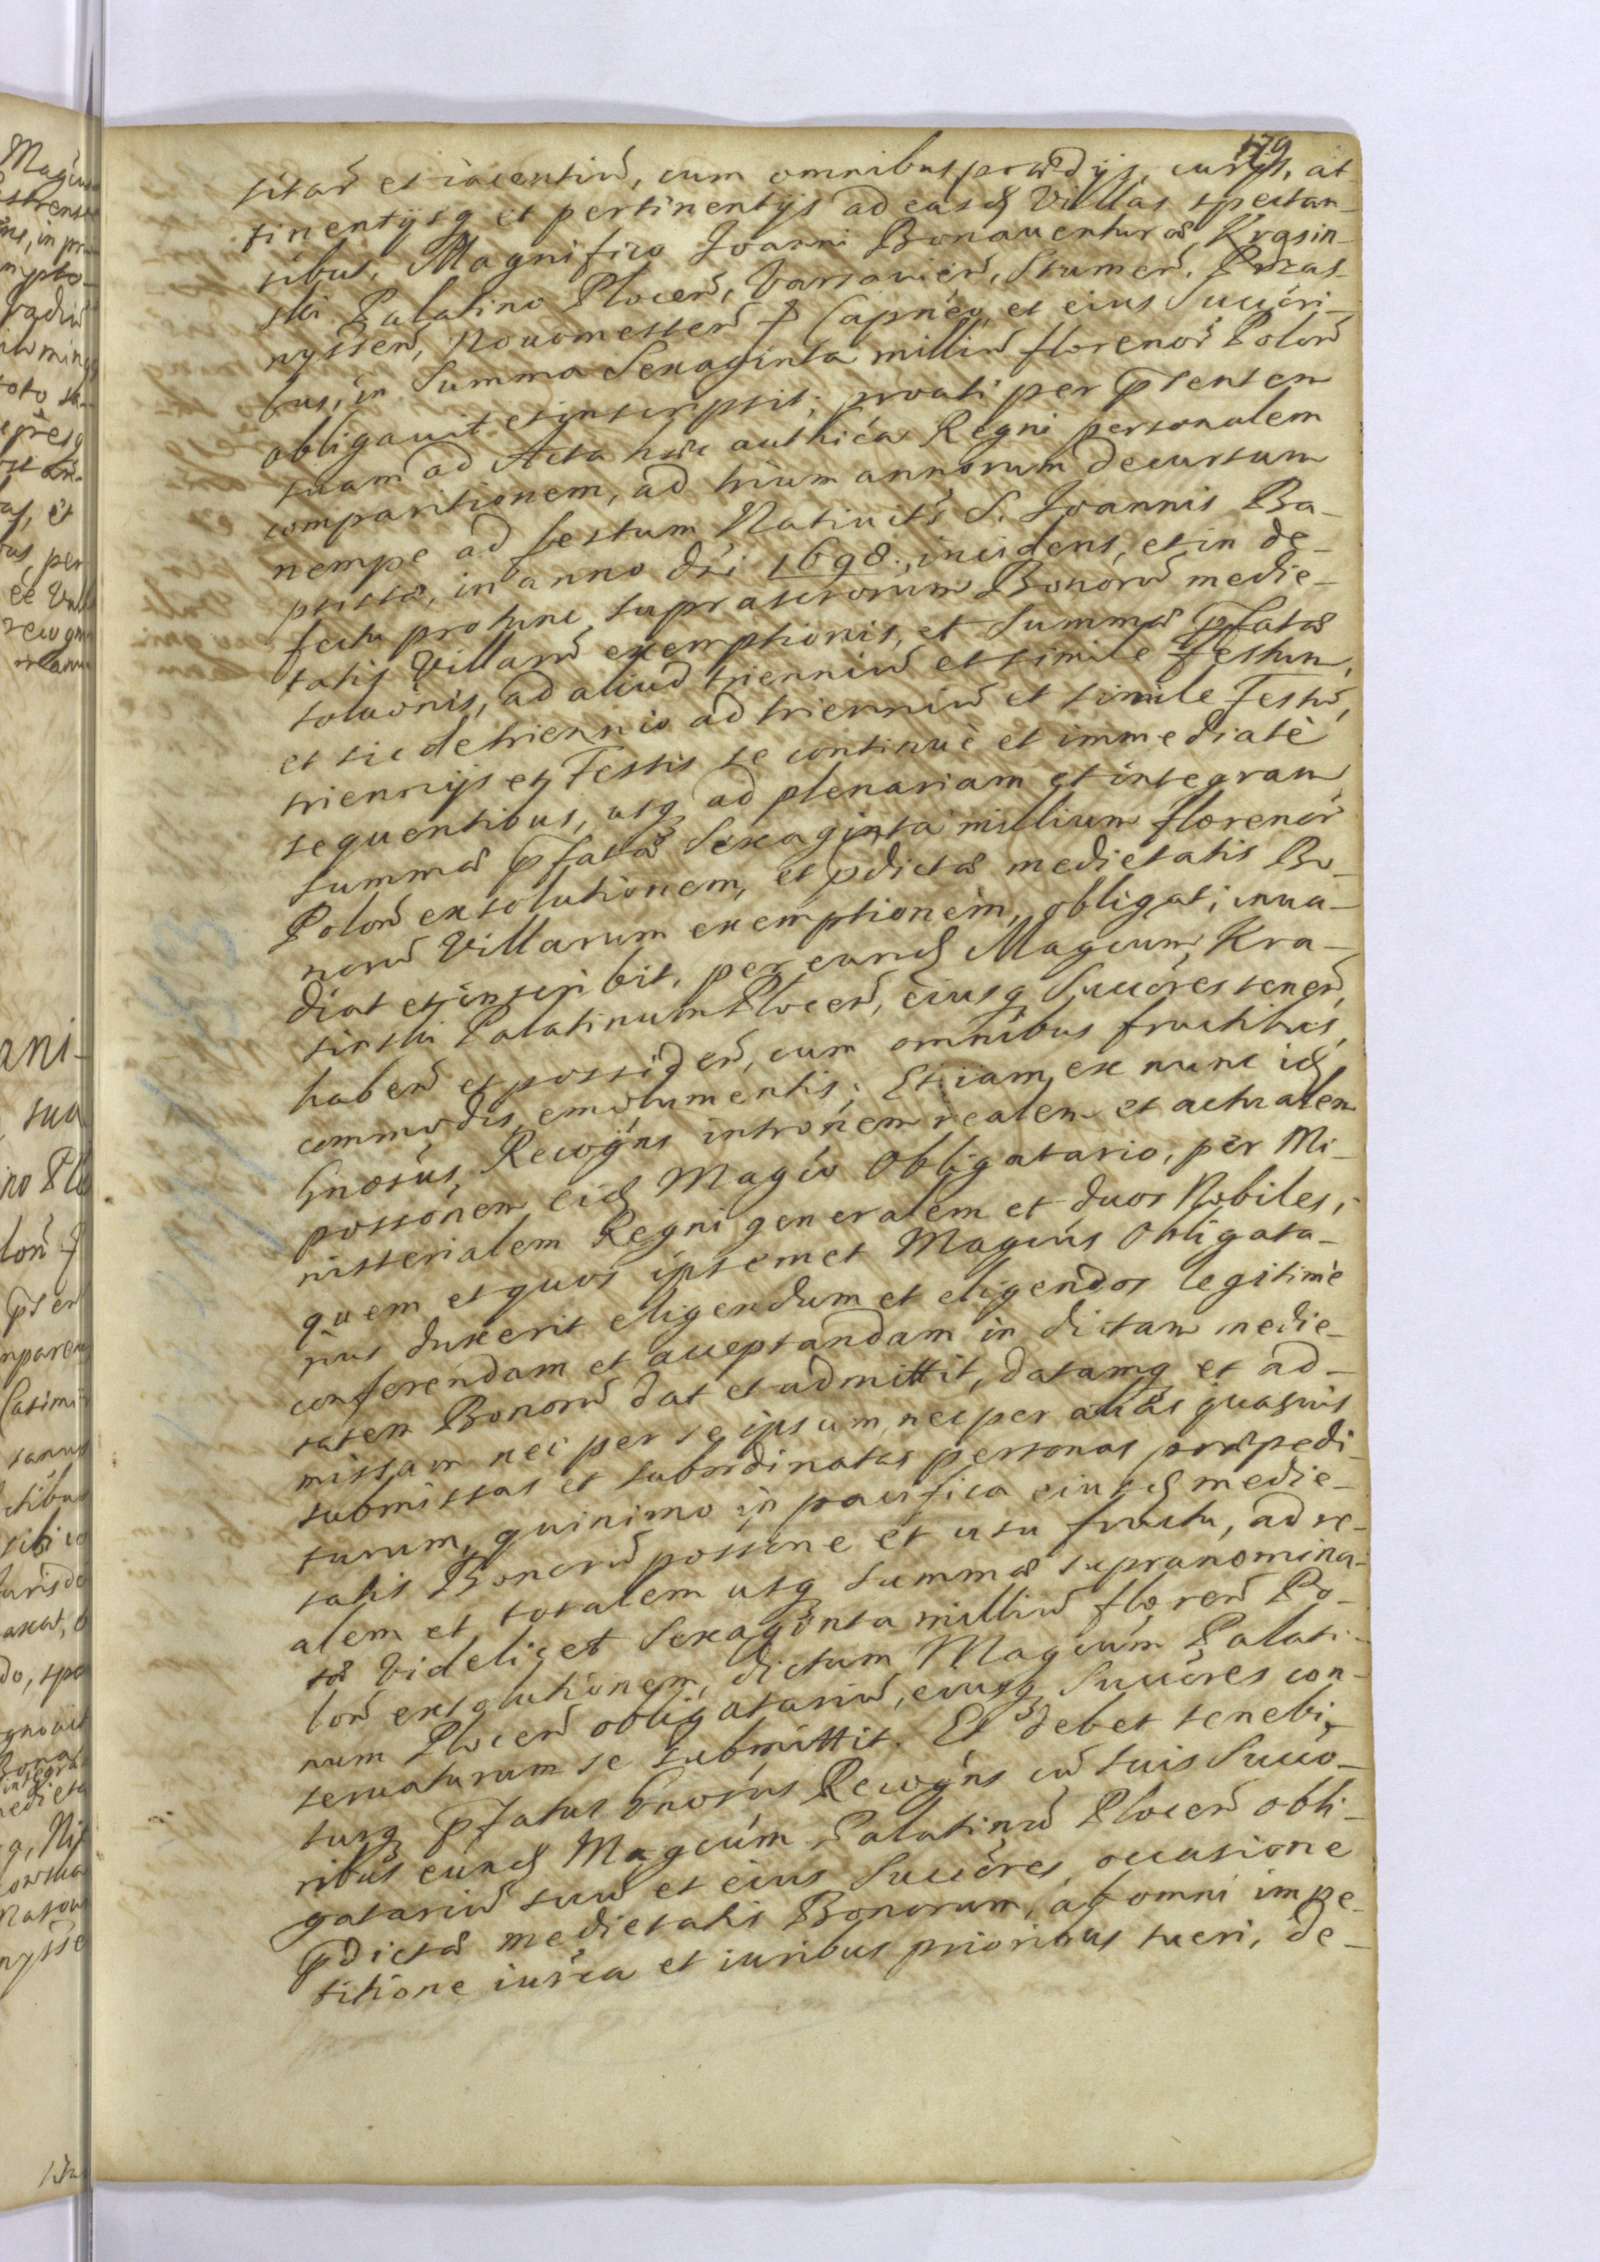 179
sitar̃ et iacentiũ, cum omnibus prædijs, curijs, at
tinentijsq et pertinentijs ad easd Villas spectan-
tibus. Magnifico Ioanni Bonauenturæ Krasin-
ski Palatino Plocen̄, Varsauien̄, Stumen̄, Przas-
nyssen̄, Nouomesten̄ & Capnéo, et eius Succóri-
bus, in Summa Sexaginta milliũ florenor̃ Polon̄
obligauit et inscripsit; prouti per pñsentem
suam ad Acta hæc authica Regni personalem
comparitionem, ad trium annorum decursum
nempe ad festum Natiuit̃s S. Ioannis Ba-
ptistæ, in anno dñi 1698. incidens, et in de-
fectu protunc suprascriptorum Bonorũ medie-
tatis Villarũ exemptionis, et Summæ pfatæ
soluónis, ad aliud trienniũ et simile festum,
et sic de triennio ad trienniũ et simile Festũ,
triennijs et Festis se continuè et immediatè
sequentibus, usq ad plenariam et integram
summæ pfatæ Sexaginta millium florenor̃
Polon̄ exsolutionem, et pdictæ medietatis Bo-
norũ Villarum exemptionem, obligat, inua-
diat et inscribit, per eund Magcum Kra-
sinski Palatinum Plocen̄, eiusq Succóres tenen̄,
haben̄ et possiden̄, cum omnibus fructibus,
commodis, emolumentis; Et iam ex nunc id
Gnosus, Recogñs intrónem realem et actualem
possónem eid Magco Obligatario, per Mi-
nisterialem Regni generalem et duos Nobiles,
quem et quos ipsemet Magcus Obligata-
rius duxerit eligendum et eligendos legitimè
conferendam et acceptandam in dictam medie-
tatem Bonorũ dat et admittit, datamq et ad-
missam nec per se ipsum, nec per alias quasuis
submissas et subordinatas personas præpedi-
turum, quinimo in pacifica eiusd medie-
tatis Bonorũ possóne et usu fructu, ad re-
alem et totalem usq Summæ supranomina-
tæ videlicet Sexaginta milliũ floren̄ Po-
lon̄ exsolutionem, dictum Magcum Palati-
num Plocen̄ obligatariũ, eiusq Succóres con-
seruaturum se submittit. Et debet tenebi-
turq pfatus Gnosus Recogñs cũ suis Succó-
ribus eund Magcum Palatinũ Plocen̄ obli-
gatariũ suũ et eius Succóres, occasione
pdictæ medietatis Bonorum, ab omni impe-
titione iurica et iuribus prioribus tueri, de-